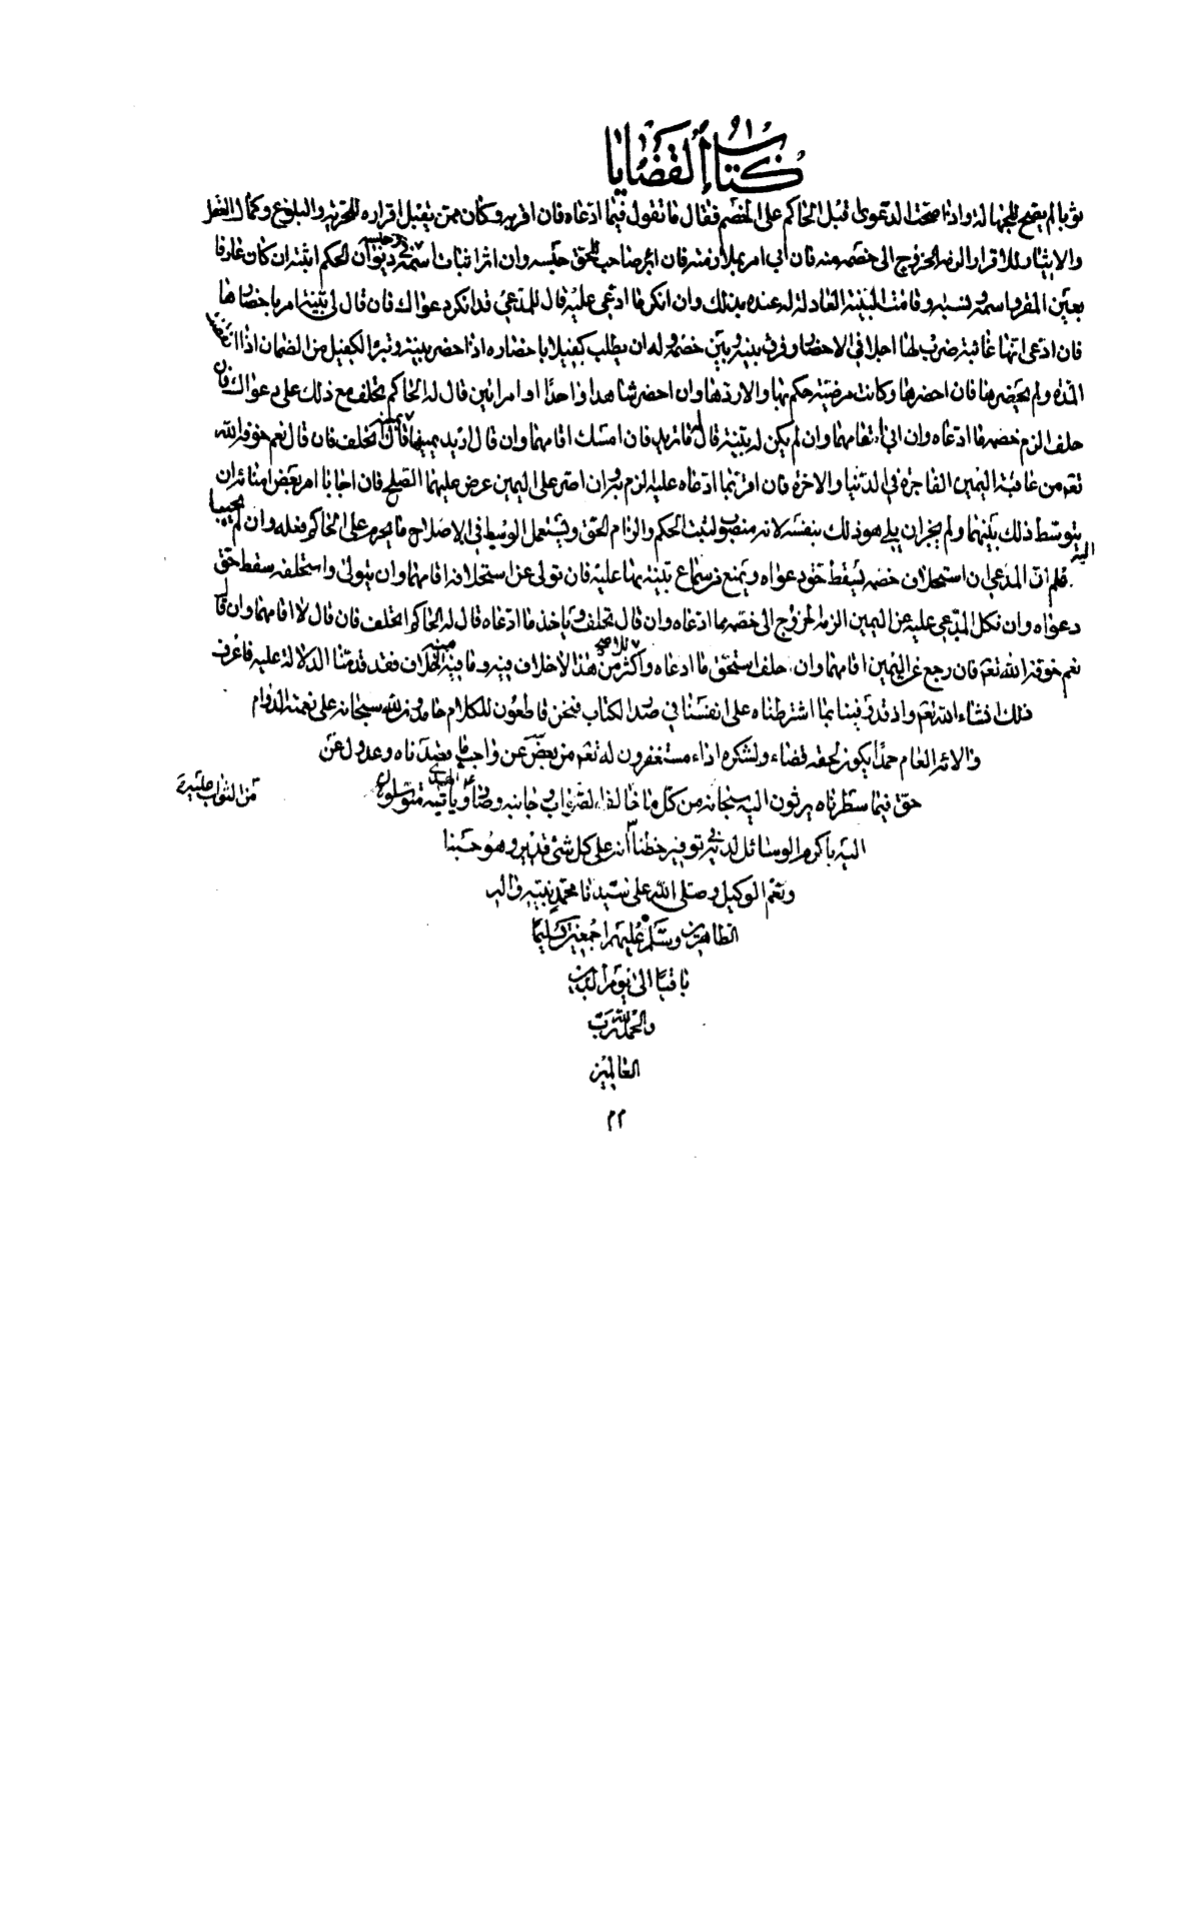 كتاب القضايا
ثوبا لم يصح للجهالة واذا صحت الدعوى قبل الحاكم على الخصم فقال ما تقول فيما ادعاه فان اقر به وكان ممن يقبل اقراره للحرية والبلوغ وكمال العقل
والايثار للاقرار الزمه الخروج الى خصمه منه فان ابى امر بملازمته فان اثر صاحب الحق حبسه وان اثر اثبات اسمه في ديوان الحكم اثبته ان كان عارفا
بعين المقر واسمه ونسبه او قامت البينة العادلة له عنده بذلك وان انكر ما ادعى عليه قال للمدعي قد انكر دعواك فان قال لي بينة امر باحضارها
فان ادعى انها غائبة ضرب لها اجلا في الاحضار وفرق بينه وبين خصمه وله ان يطلب كفيلا باحضاره اذا حضر بينة وتبرا الكفيل من الضمان اذا انقضت
المدة ولم يحضرها فان احضرها وكانت مرضية حكم بها والا ردها وان احضر شاهدا واحدا او امراتين قال له الحاكم تحلف مع ذلك على دعواك فان
حلف الزم خصمه ما ادعاه وان ابى اقامهما وان لم يكن له بينة قال له ما تريد فان امسك اقامهما وان قال اريد يمينه قال اتحلف فان قال نعم خوفه الله
تعالى من عاقبة اليمين الفاجرة في الدنيا والاخرة فان اقر بما ادعاه عليه لزم وان اصر على اليمين عرض عليهما الصلح فان اجابا امر بعض امنائه ان
يتوسط ذلك بينهما ولم يجز ان يلي هو ذلك بنفسه لانه منصوب لبت الحكم والزام الحق ويستعمل الوسيط في الاصلاح ما يحرم على الحاكم فعله وان لم يجيبا
اليه
فلم ان المدعي ان استحلاف خصمه يسقط حق دعواه ويمنع من سماع بينة بها عليه فان تولى عن استحلافه اقامهما وان يتولى واستحلفه سقط حق
دعواه وان نكل المدعى عليه عن اليمين الزمه الخروج الى خصمه مما ادعاه وان قال يحلف وياخذ ما ادعاه قال له الحاكم اتحلف فان قال لا اقامهما وان قال
نعم خوفه الله تعالى فان رجع عن اليمين اقامهما وان حلف استحق ما ادعاه واكثر من هذا لا خلاف فيه وما فيه الخلاف فقد قدمنا الدلالة عليه فاعرف
ذلك ان شاء الله تعالى واذ قد وفينا بما اشترطناه على انفسنا في صدر الكتاب فنحن قاطعون للكلام حامدون لله سبحانه على نعمته الدوام
والائه العام حمدا يكون لحقه قضاء ولشكره اداء مستغفرون له تعالى من بعض عن واجب ما وعدول عن
حق فيما سطرناه برئون اليه سبحانه من كل ما خالف الصواب وجانبه متوسلون
من الثواب عليه
اليه باكرم الوسائل لديه في توفير حظنا انه على كل شئ قدير وهو حسبنا
ونعم الوكيل وصلى الله على سيدنا محمد نبيه واله
الطاهرين وسلم عليهم اجمعين تسليما
باقيا الى يوم الدين
والحمد لله رب
العالمين
م م